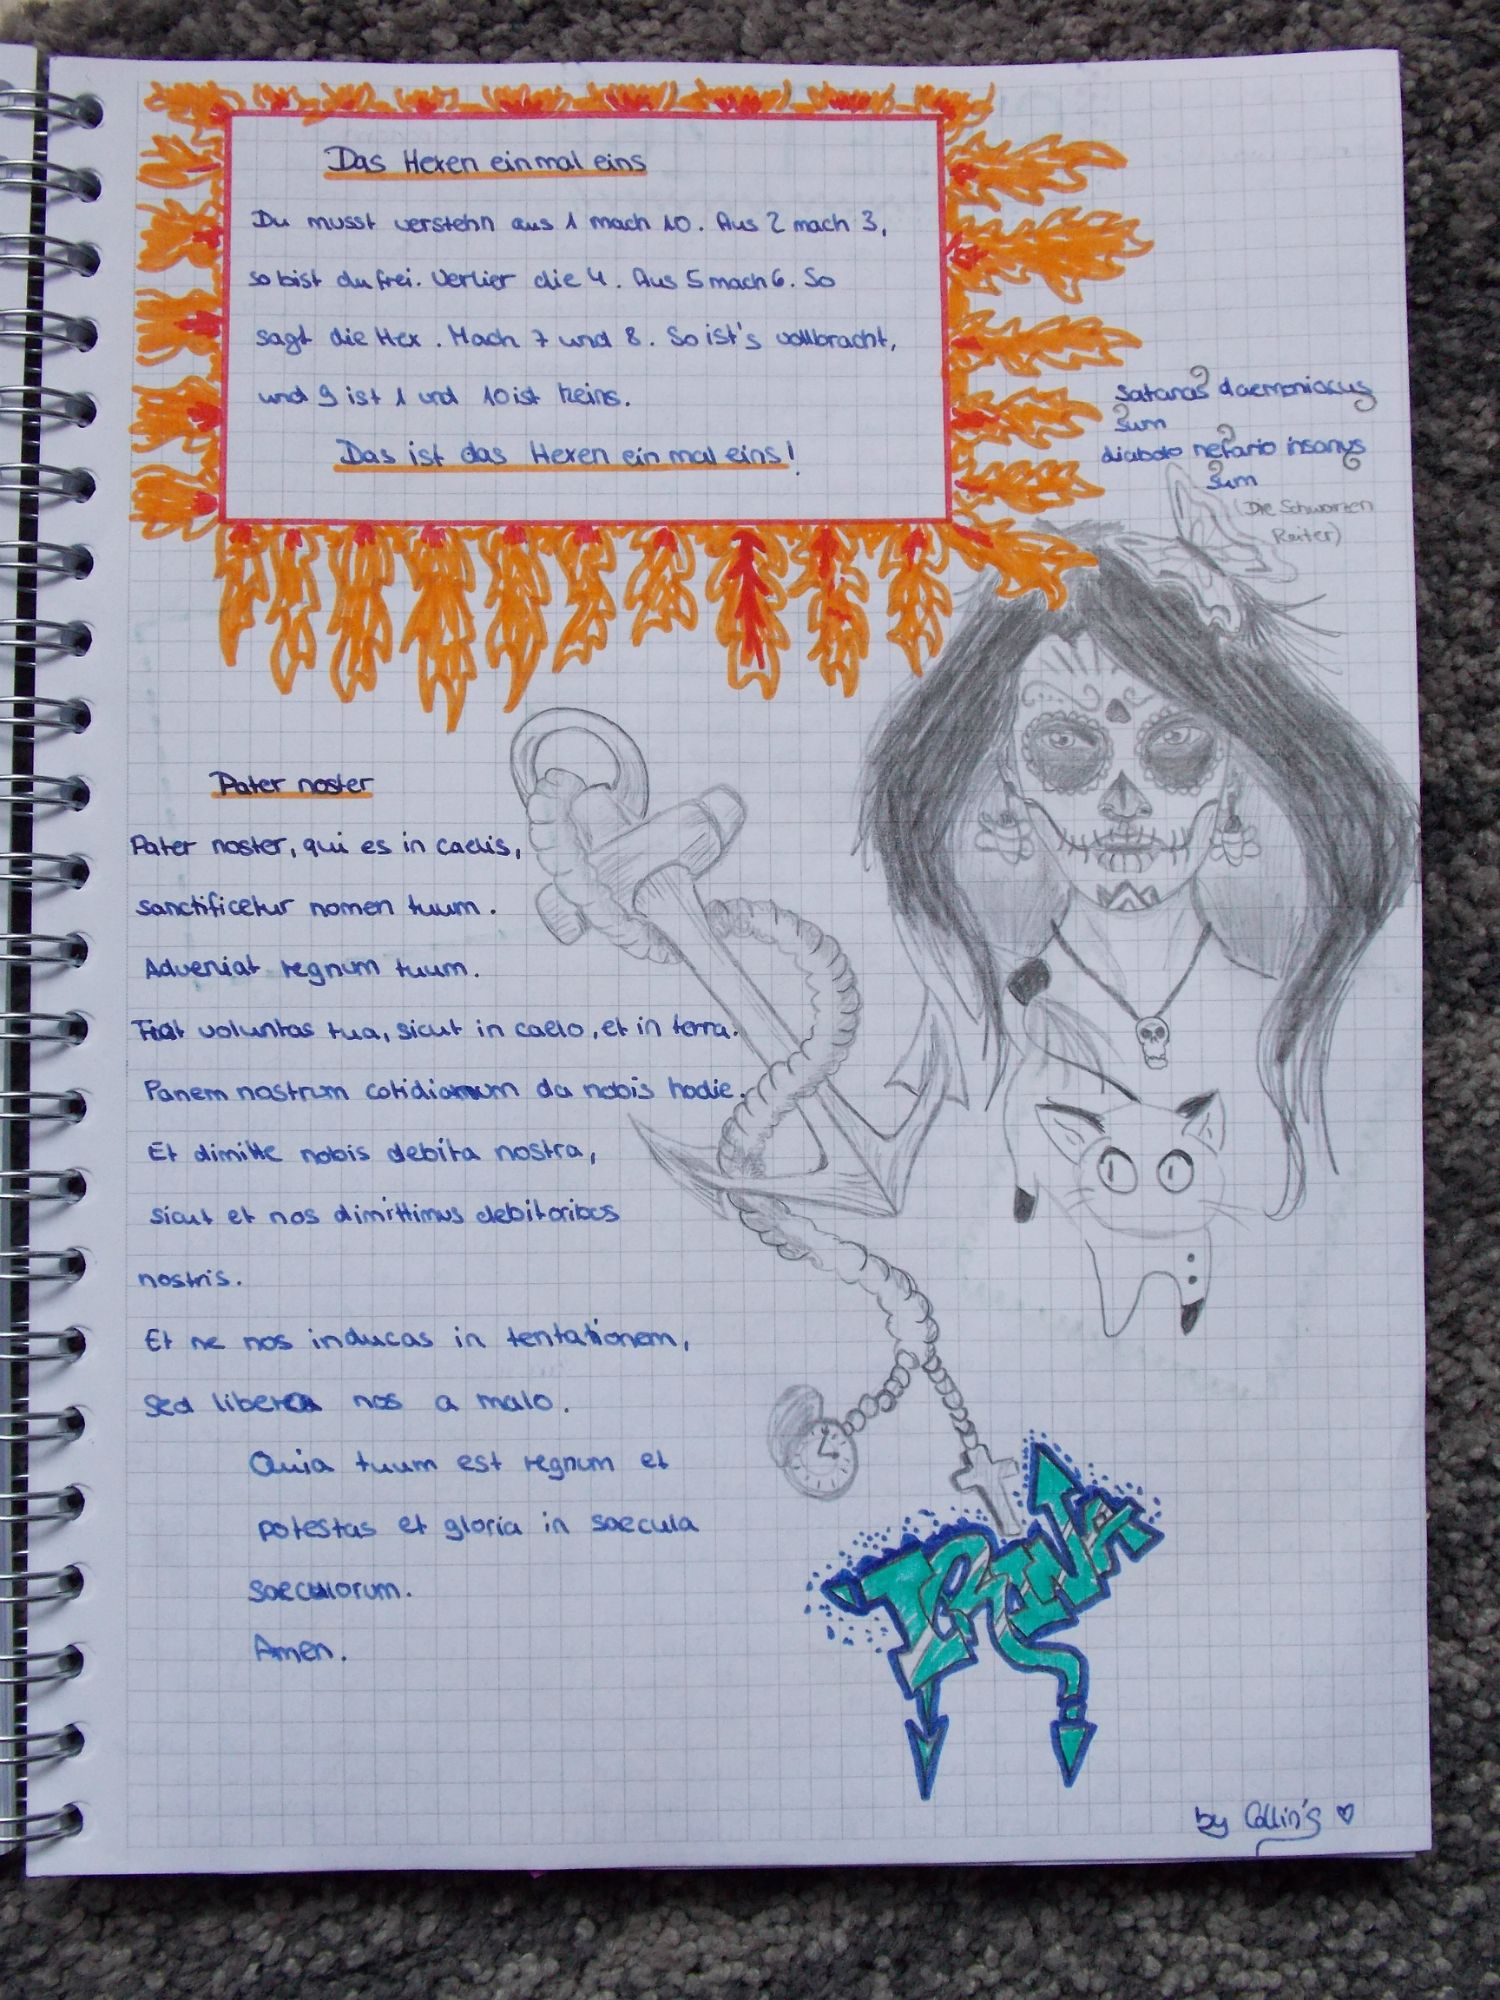 Das Hexen einmal eins
Du musst verstehn aus 1 mach 10. Aus 2 mach 3,
so bist du frei. Verlier die 4. Aus 5 mach 6. So
sagt die Hex. Mach 7 und 8. So ist's vollbracht,
und 9 ist 1 und 10 ist keins.
Das ist das Hexen ein mal eins!
satanas daemoniacus
sum
diabolo nefario insanus
sum
(Die Schwarzen
Reiter)
Pater noster
Pater noster, qui es in caelis,
sanctificetur nomen tuum.
Adveniat regnum tuum.
Fiat voluntas tua, sicut in caelo, et in terra.
Panem nostrum cotidianum da nobis hodie.
Et dimitte nobis debita nostra,
sicut et nos dimittimus debitoribus
nostris.
Et ne nos inducas in tentationem,
sed libera nos a malo.
Quia tuum est regnum et
potestas et gloria in saecula
saeculorum.
Amen.
IRINA
by Collin's ♡